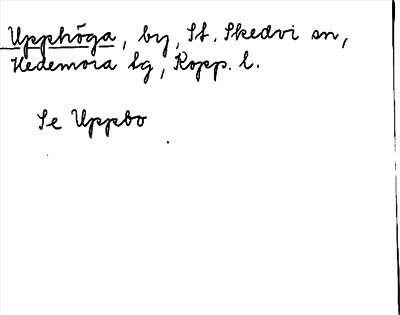 Upphöga, by, St. Skedvi sn,
Hedemora tg, Kopp. l.
Se Uppbo